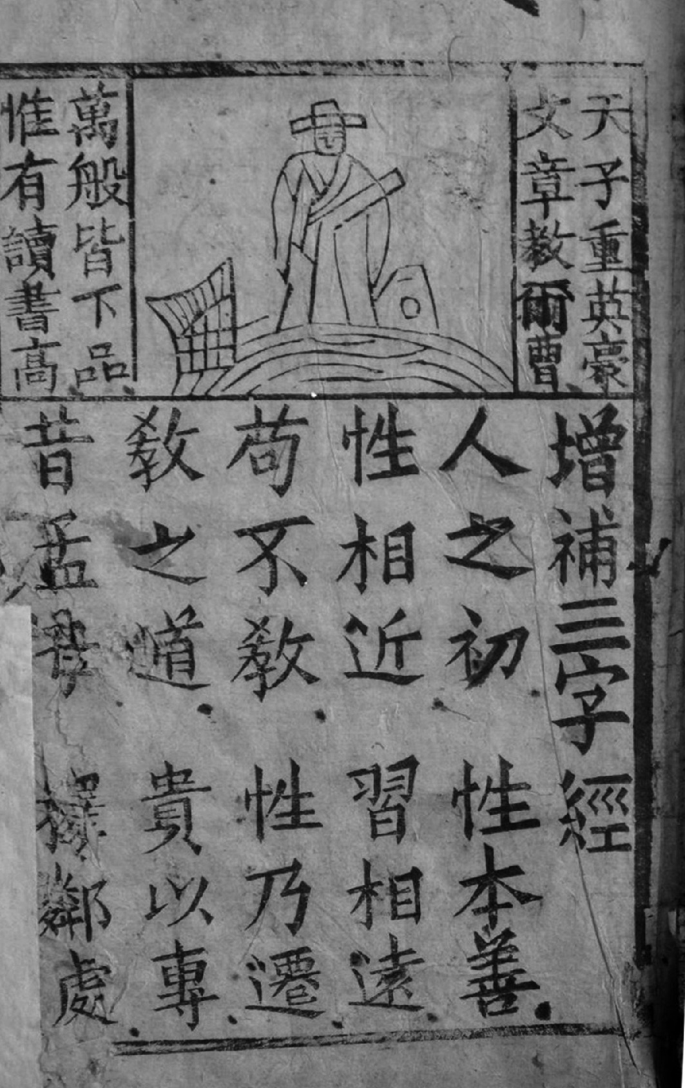 天子重英豪
文章教爾曹
萬般皆下品
惟有讀書高
增補三字經
人之初 性本善
性相近 習相遠
苟不教 性乃遷
教之道 貴以專
昔孟母 擇鄰處